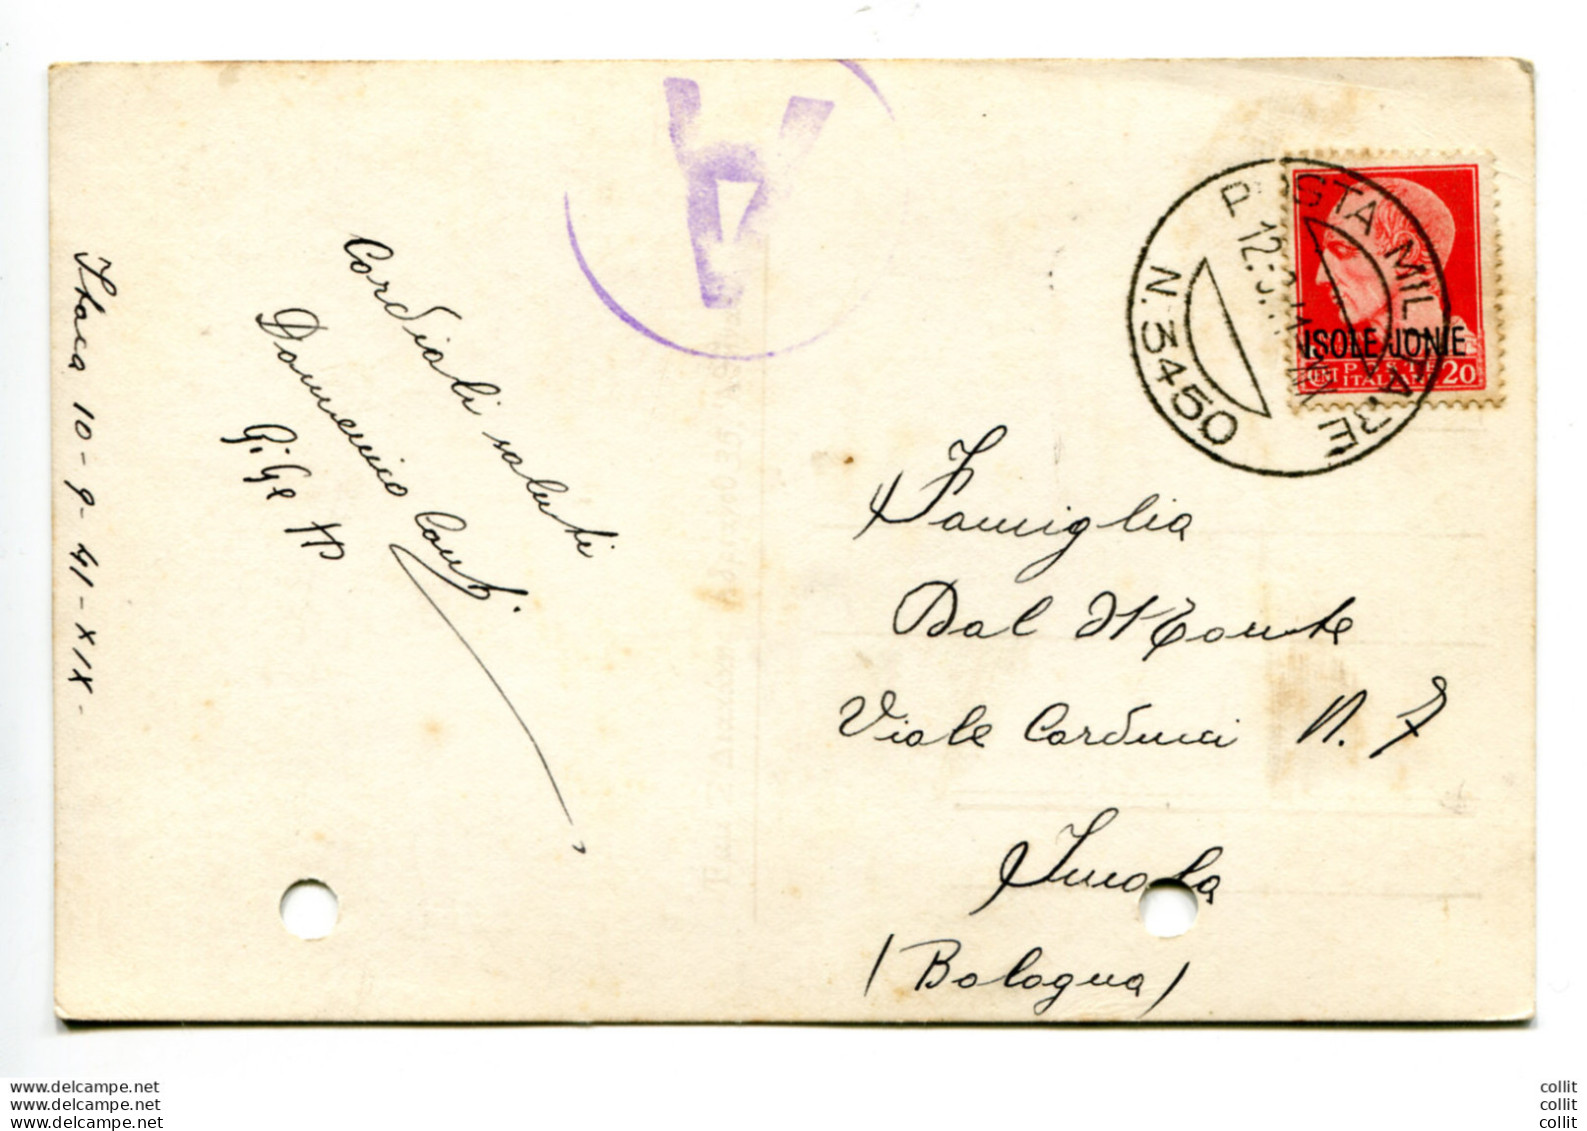 Itaca 10-9-41-XIX-
Cordiali saluti
Domenico
A
POSTA MILITARE
N. 3450
12.
ISOLE JONIE
POSTE
ITALIANE
20
Famiglia
Dal Monte
Viale Carducci N. 7
Imola
(Bologna)
www.delcampe.net
www.delcampe.net
www.delcampe.net
collit
collit
collit